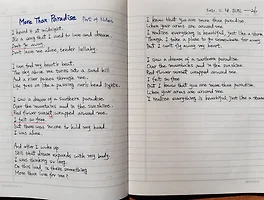 More Than Paradise Port of Notes
I heard it at midnight.
It's a song that I used to love and dream
Don't go away
Don't leave me alone, tender lullaby.
I can feel my heart's beat.
The sky above me turns into a sand hill
And a river passes through me.
Life goes on like a passing car's head lights.
I saw a dream of a southern paradise
Over the mountains and in the sunshine.
Red flower sunset wrapped around me.
I felt so free
But there was no one to hold my hand
I was alone.
And after I woke up
Still that dream expands with my body.
I was thinking so long
On this land, is there something
More than live for me?
I know that you are more than paradise
When your arms are around me
I realize everything is beautiful, just like a stone
Though I take a plane to go somewhere far away
But I can't fly away my heart.
I saw a dream of a southern paradise
Over the mountains and in the sunshine
Red flower sunset wrapped around me
I felt so free
But I know that you are more than paradise
When your arms are around me
I realize everything is beautiful, just like a stone